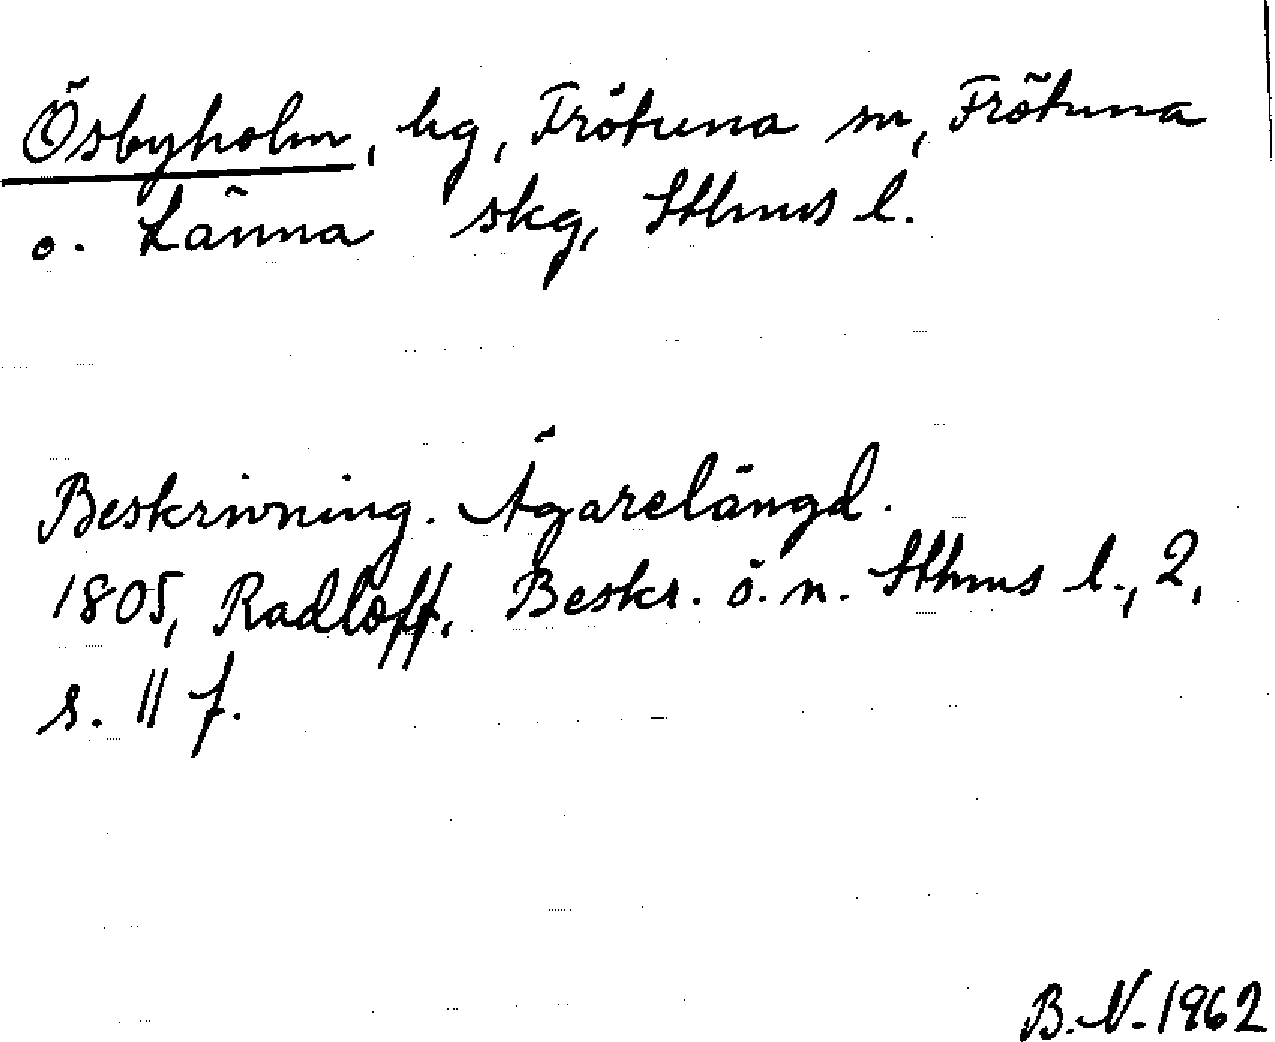 Ösbyholm, hg, Frötuna sn, Frötuna
o. Länna skg, Sthlms l.
Beskrivning. Ägarelängd.
1805, Radloff, Beskr. ö. n. Sthms l., 2,
s. 11 f.
B.N. 1962